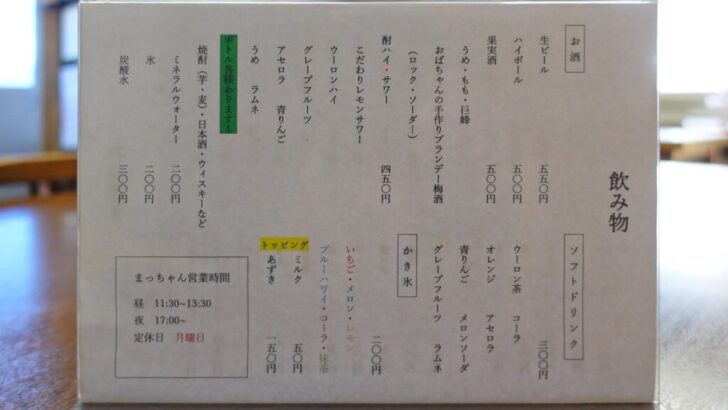 飲み物
お酒
生ビール 五五〇円
ハイボール 五〇〇円
果実酒 五〇〇円
うめ・もも・巨峰
おばちゃんの手作りブランデー梅酒
（ロック・ソーダー）
酎ハイ・サワー 四五〇円
こだわりレモンサワー
ウーロンハイ
グレープフルーツ
アセロラ 青りんご
うめ ラムネ
ボトル各種あります！
焼酎（芋・麦）・日本酒・ウィスキーなど
ミネラルウォーター 二〇〇円
氷 二〇〇円
炭酸水 三〇〇円
ソフトドリンク 三〇〇円
ウーロン茶 コーラ
オレンジ アセロラ
青りんご メロンソーダ
グレープフルーツ ラムネ
かき氷 二〇〇円
いちご・メロン・レモン
ブルーハワイ・コーラ・抹茶
トッピング
ミルク 五〇円
あずき 一五〇円
まっちゃん営業時間
昼 11:30~13:30
夜 17:00~
定休日 月曜日